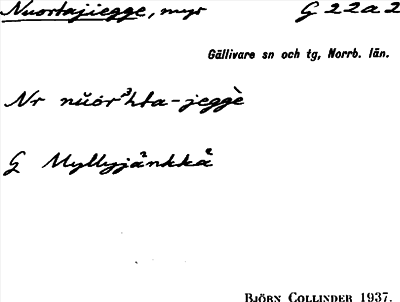 Nuortajiegge, myr G 22a2
Gällivare sn och tg, Norrb. län.
Nr nŭor³hta-jeggè
G Myllyjånkkå
BJÖRN COLLINDER 1937.